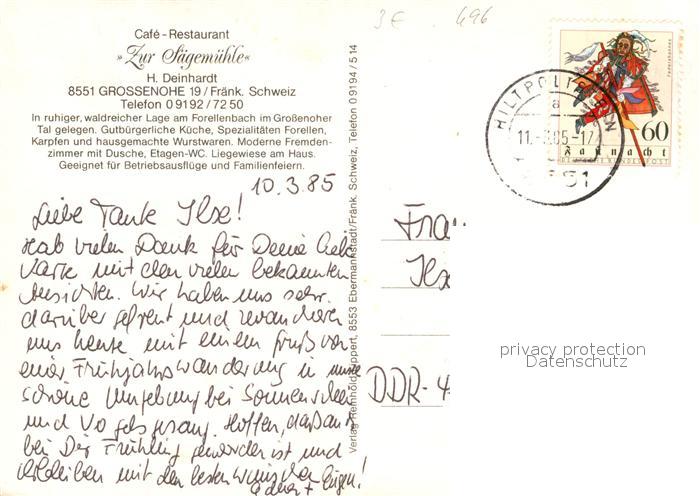 3€ 696
Café - Restaurant
»Zur Sägemühle«
H. Deinhardt
8551 GROSSENOHE 19 / Fränk. Schweiz
Telefon 0 91 92 / 72 50
In ruhiger, waldreicher Lage am Forellenbach im Großenoher
Tal gelegen. Gutbürgerliche Küche, Spezialitäten Forellen,
Karpfen und hausgemachte Wurstwaren. Moderne Fremden-
zimmer mit Dusche, Etagen-WC. Liegewiese am Haus.
Geeignet für Betriebsausflüge und Familienfeiern.
10.3.85
Liebe Tante Ilse!
Hab vielen Dank für Deine liebe
Karte mit den vielen bekannten
Ansichten. Wir haben uns sehr
darüber gefreut und revanchieren
uns heute mit einem Gruß von
einer Frühjahrswanderung in unsere
schöne Umgebung bei Sonnenschein
und Vogelsgesang. Hoffen, daß auch
bei Dir Frühling geworden ist und
verbleiben mit den besten Wünschen
+ Eugen!
Verlag Reinhold Ruppert, 8553 Ebermannstadt/Fränk. Schweiz, Telefon 0 91 94 / 5 14
Frau
Ilse
DDR-4
HILTPOLTSTEIN
a
11.-3.85-17
8551
Federahannes
60
Fasnacht
DEUTSCHE BUNDESPOST
privacy protection
Datenschutz